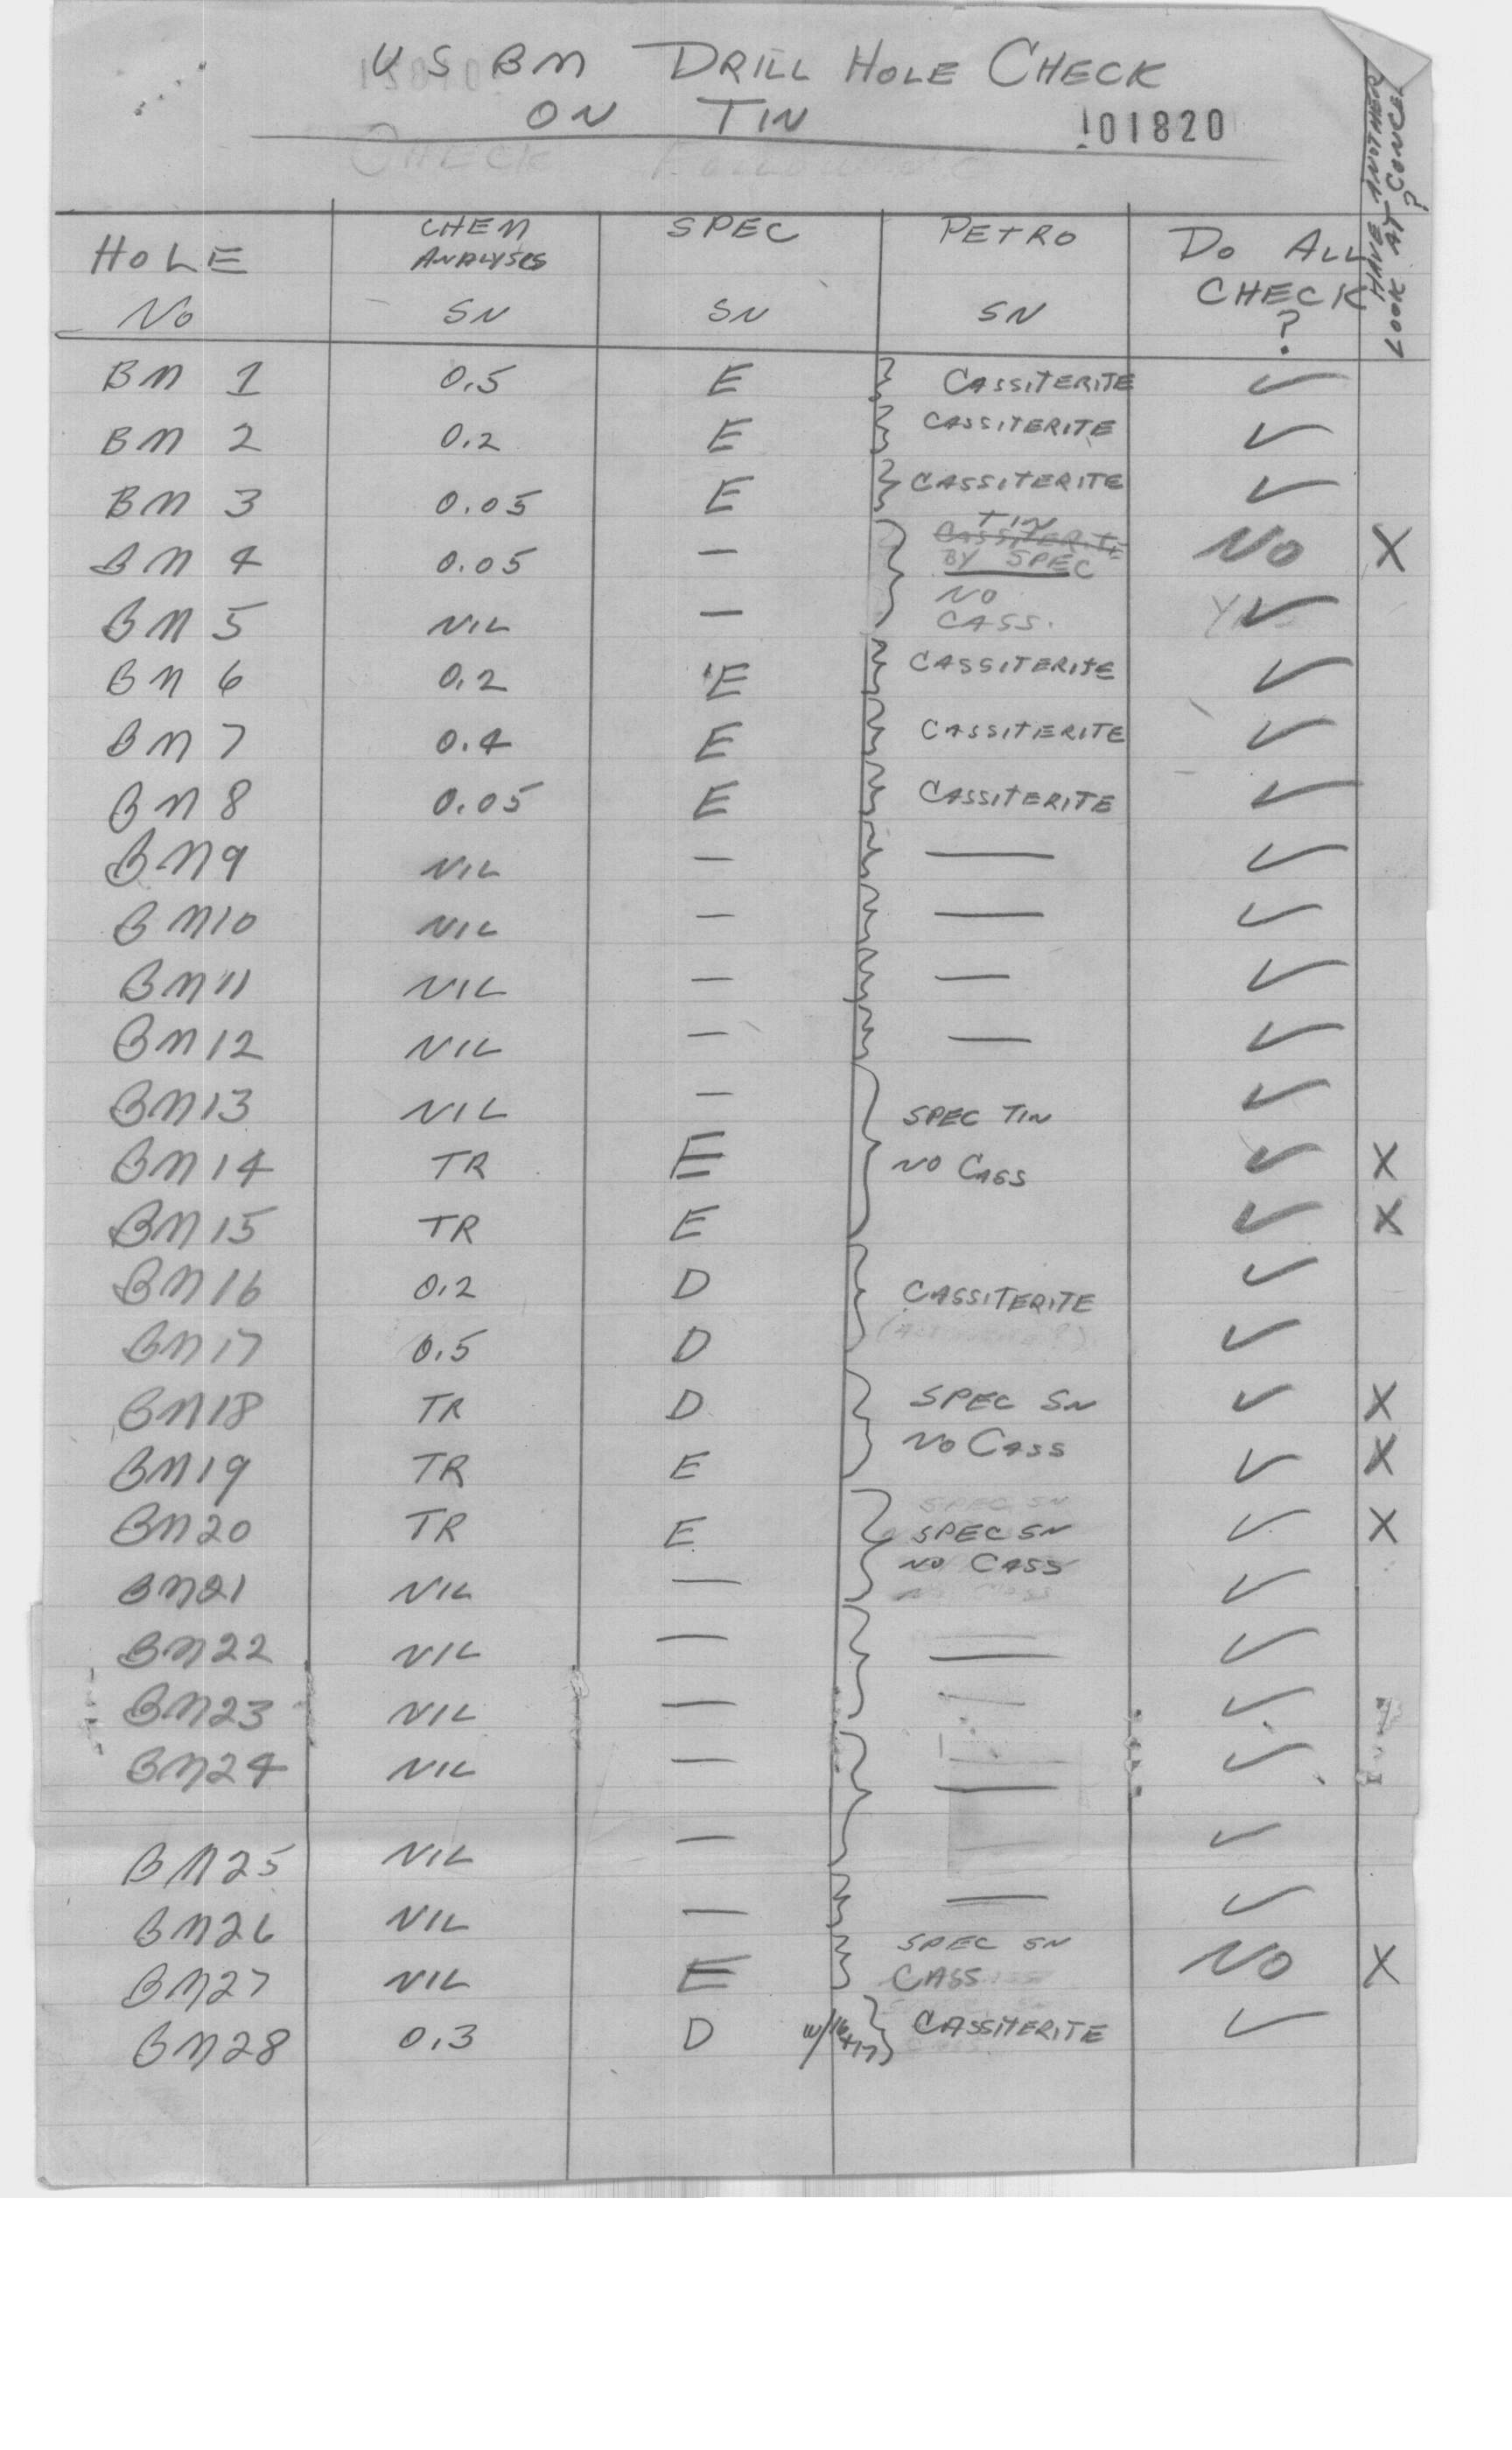 U S BM DRILL HOLE CHECK
ON TIN
101820
HAVE ANOTHER
LOOK AT CONCE?
HOLE No
CHEM ANALYSES SN
SPEC SN
PETRO SN
DO ALL CHECK ?
BM 1 0.5 E CASSITERITE ✓
BM 2 0.2 E CASSITERITE ✓
BM 3 0.05 E CASSITERITE ✓
TIN
CASSITERITE
BM 4 0.05 — BY SPEC NO X
NO
BM 5 NIL — CASS. ✓
BM 6 0.2 E CASSITERITE ✓
BM 7 0.4 E CASSITERITE ✓
BM 8 0.05 E CASSITERITE ✓
BM 9 NIL — — ✓
BM 10 NIL — — ✓
BM 11 NIL — — ✓
BM 12 NIL — — ✓
BM 13 NIL — SPEC TIN ✓
BM 14 TR E NO CASS ✓ X
BM 15 TR E ✓ X
BM 16 0.2 D CASSITERITE ✓
BM 17 0.5 D ✓
BM 18 TR D SPEC SN ✓ X
NO CASS
BM 19 TR E ✓ X
SPEC SN
BM 20 TR E SPEC SN ✓ X
NO CASS
BM 21 NIL — ✓
BM 22 NIL — — ✓
BM 23 NIL — ✓
BM 24 NIL — — ✓
BM 25 NIL — ✓
BM 26 NIL — — ✓
SPEC SN
BM 27 NIL E CASS NO X
BM 28 0.3 D w/16+17 CASSITERITE ✓